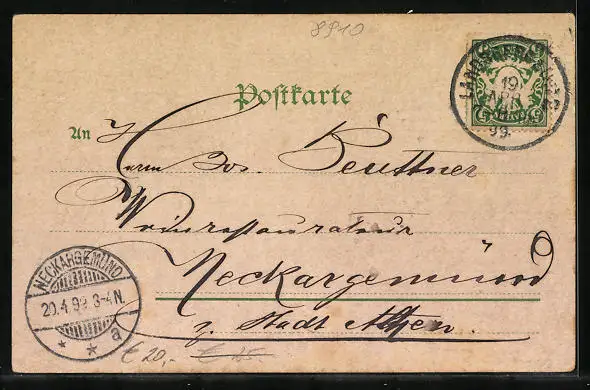 8910
Postkarte
19
APR
99.
An
Herrn Jos. Beuttner
Weinrestaurateur
Neckargemünd
z. Stadt Athen.
NECKARGEMÜND
20.4.99. 3-4 N.
* * a
€ 20,-